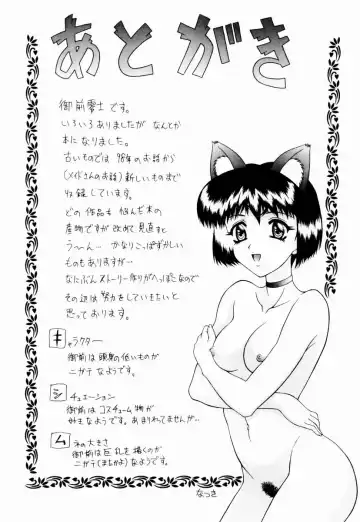 あとがき
御前零士です。
いろいろありましたが なんとか
本になりました。
古いものでは98年のお話から
(メイドさんのお話)新しいものまで
収録しています。
どの作品も 悩んだ末の
産物ですが 改めて見直すと
う〜ん… かなりこっぱずかしい
ものもありますが…
なにぶんストーリー作りがヘッポコなので
その辺は努力をしていきたいと
思っております。
キャラクター
御前は頭身の低いものが
ニガテなようです。
シチュエーション
御前はコスチューム物が
好きなようです。あまりやれてませんが…
ムネの大きさ
御前は巨乳を描くのが
ニガテ(まだかよ)なようです。
なつき